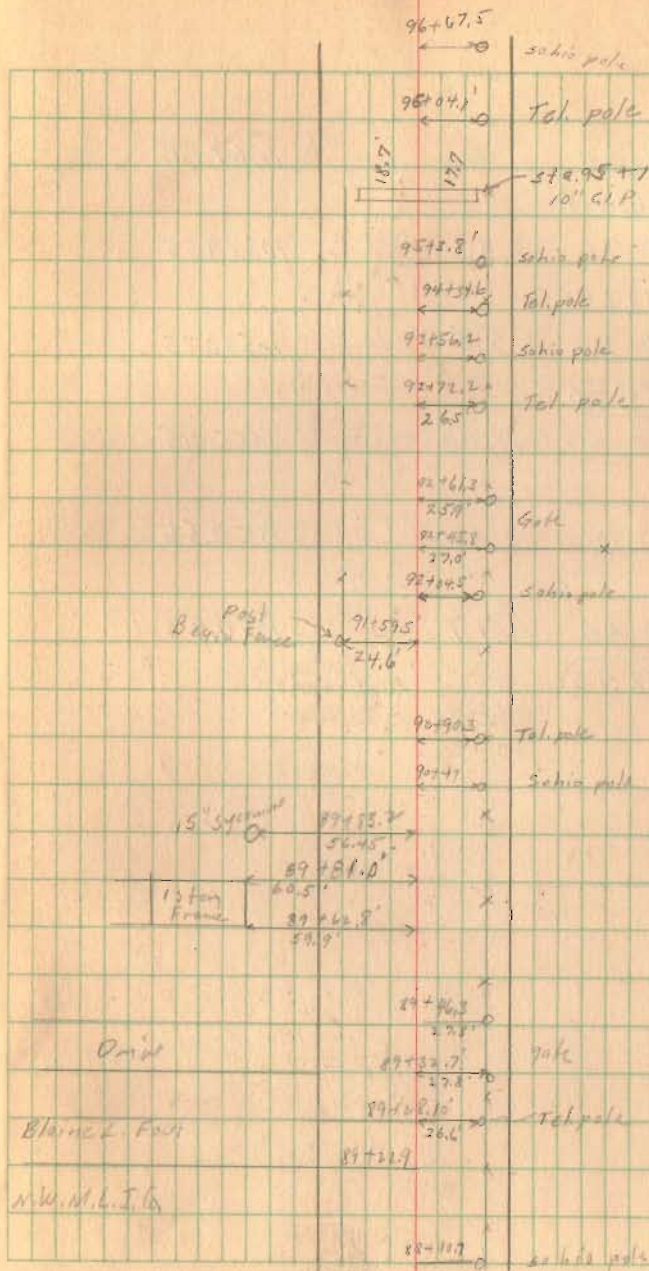 96+67.5
sohio pole
96+04.1'
Tel. pole
18.7'
17.7
sta. 95+1
10" C.I.P
95+3.8'
sohio pole
94+34.6
Tel. pole
93+56.2
sohio pole
92+72.2
Tel. pole
26.5'
92+61.3
25.9'
Gate
92+45.8
27.0'
92+04.5'
sohio pole
Post
Begin Fence
91+59.5'
24.6'
90+90.3
Tel. pole
90+41
Sohio pole
15" Sycamore
89+83.2
56.45
89+81.0'
60.5'
1 story
Frame
89+62.8'
59.9'
89+46.3
27.8'
Drive
89+32.7'
gate
27.8'
89+08.10'
Tel. pole
26.6'
Blaine L.
89+22.9
N.W.M.L.I.Co
88+80.7
sohio pole